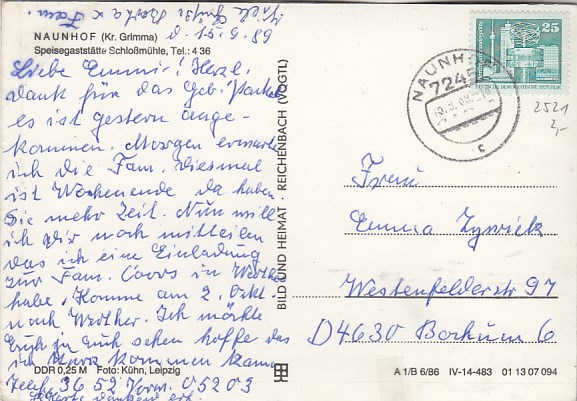 Viele Grüße Berta u. Fam.
d 15.9.89
NAUNHOF (Kr. Grimma)
Speisegaststätte Schloßmühle, Tel.: 4 36
Liebe Emmi! Herzl.
dank für das Geb. Packet
es ist gestern ange-
kommen. Morgen erwarte
ich die Fam. diesmal
ist Wochenende da haben
Sie mehr Zeit. Nun will
ich Dir noch mitteilen
das ich eine Einladung
zur Fam. in
habe, Komme am 2. Okt.
nach Werther. Ich möchte
Euch ja auch sehen hoffe das
ich kommen kann
Telefon 3652 Vorw. 05203
Karte dankend erh.
DDR 0,25 M Foto: Kühn, Leipzig
BILD UND HEIMAT · REICHENBACH (VOGTL)
25
DEUTSCHE DEMOKRATISCHE REPUBLIK
NAUNHOF
7242
c
2521
2,-
Frau
Emma Zywiek
Westenfelderstr 97
D4630 Bochum 6
A 1/B 6/86 IV-14-483 01 13 07 094